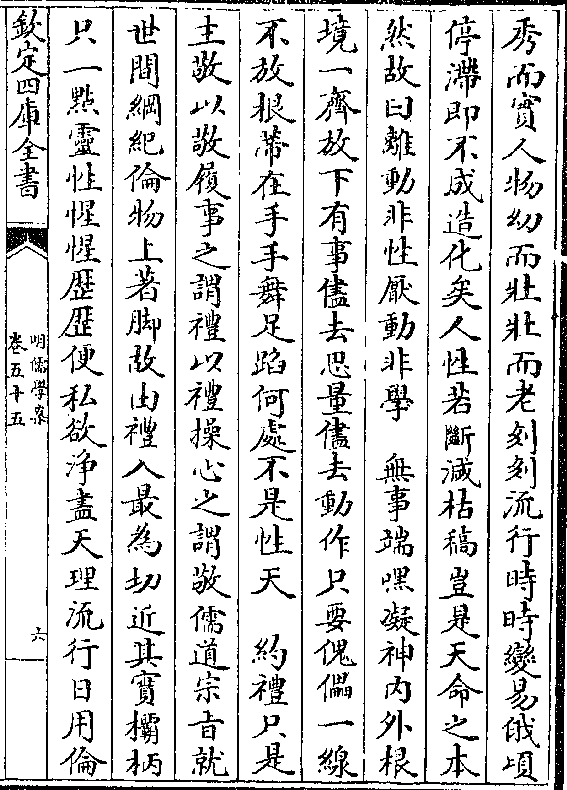 秀而實人物幼而壯壯而老刻刻流行時時變易俄頃
停滯即不成造化矣人性若斷滅枯稿豈是天命之本
然故曰離動非性厭動非學　無事端嘿凝神内外根
境一齊放下有事儘去思量儘去動作只要傀儡一線
不放根蒂在手手舞足蹈何處不是性天　約禮只是
主敬以敬履事之謂禮以禮操心之謂敬儒道宗旨就
世間綱紀倫物上著脚故由禮入最為切近其實欛柄
只一點靈性惺惺歴歴便私欲浄盡天理流行日用倫
欽定四庫全書
明儒學案
卷五十五
六